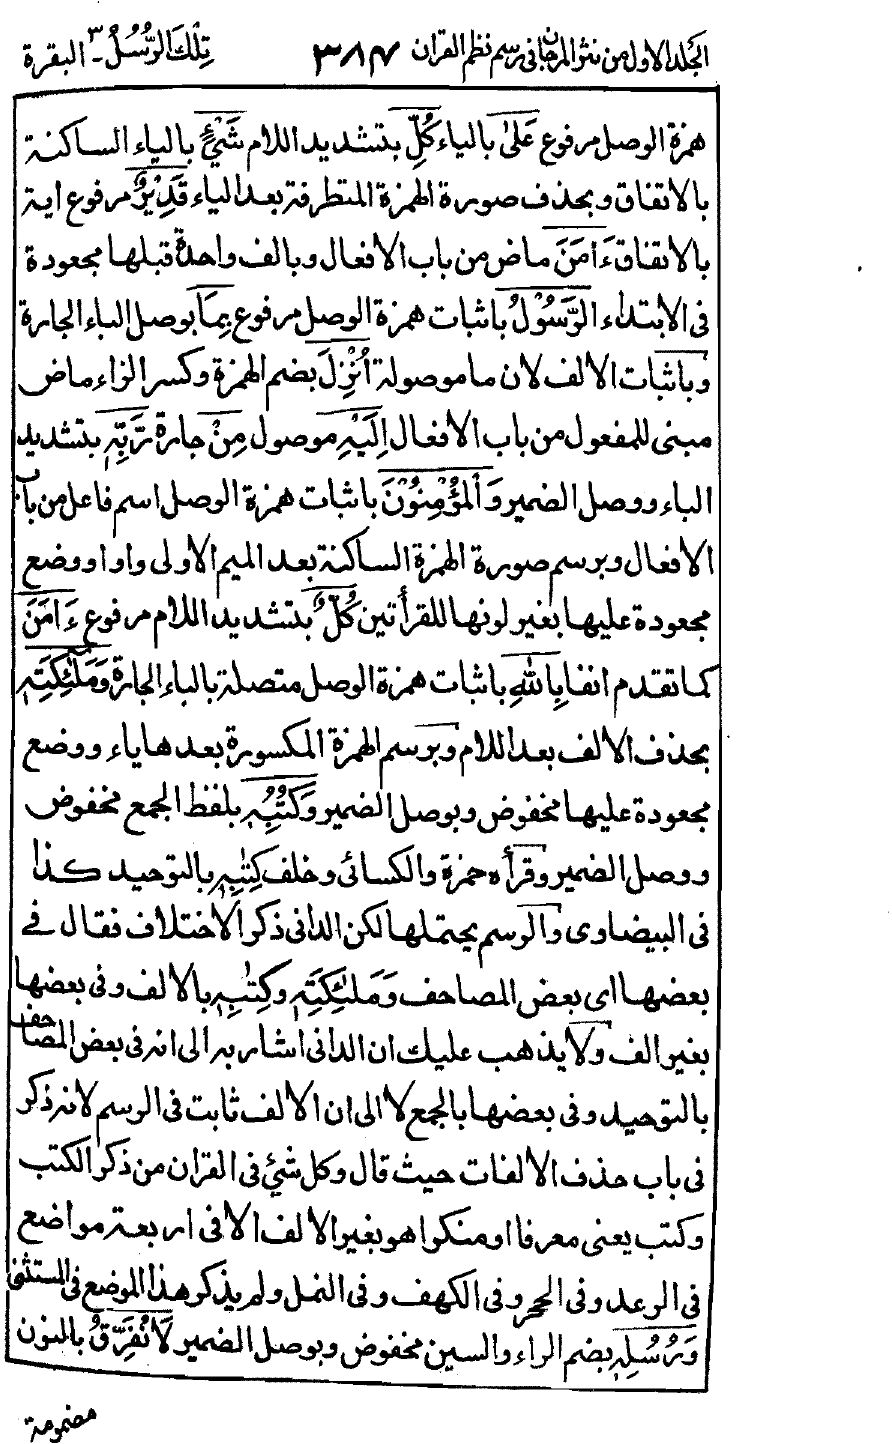 الجلد الاول من نثر المرجان في رسم نظم القران ٣٨٧ تِلْكَ الرُّسُلُ ٣ - البقرة
همزة الوصل مرفوع عَلىٰ بالياء كُلِّ بتشديد اللام شَيْءٍ بالياء الساكنة
بالاتفاق وبحذف صورة الهمزة المتطرفة بعد الياء قَدِيْرٌ مرفوع اية
بالاتفاق ءَامَنَ ماض من باب الافعال وبالف واحدة قبلها مجعودة
فى الابتداء الرَّسُوْلُ باثبات همزة الوصل مرفوع بِمَا بوصل الباء الجارة
وباثبات الالف لان ما موصولة اُنْزِلَ بضم الهمزة وكسر الزاء ماض
مبنى للمفعول من باب الافعال اِلَيْهِ موصول مِنْ جارة رَّبِّهٖ بتشديد
الباء ووصل الضمير وَالْمُؤْمِنُوْنَ باثبات همزة الوصل اسم فاعل من باب
الافعال وبرسم صورة الهمزة الساكنة بعد الميم الاولى واوا ووضع
مجعودة عليها بغير لونها للقرأتين كُلٌّ بتشديد اللام مرفوع ءَامَنَ
كما تقدم انفا بِاللّٰهِ باثبات همزة الوصل متصلة بالباء الجارة وَمَلٰئِكَتِهٖ
بحذف الالف بعد اللام وبرسم الهمزة المكسورة بعدها ياء ووضع
مجعودة عليها مخفوض وبوصل الضمير وَكُتُبِهٖ بلفظ الجمع مخفوض
ووصل الضمير وقرأه حمزة والكسائى وخلف كِتٰبِهٖ بالتوحيد كذا
فى البيضاوى والرسم يحتملها لكن الدانى ذكر الاختلاف فقال فے
بعضها اى بعض المصاحف وَمَلٰئِكَتِهٖ وكِتٰبِهٖ بالالف وفى بعضها
بغير الف ولا يذهب عليك ان الدانى اشار به الى انه فى بعض المصاحف
بالتوحيد وفى بعضها بالجمع لا الى ان الالف ثابت فى الرسم لانه ذكر
فى باب حذف الالفات حيث قال وكل شئ فى القران من ذكر الكتب
وكتب يعنى معرفا او منكرا هو بغير الالف الا فى اربعة مواضع
فى الرعد وفى الحجر وفى الكهف وفى النمل ولم يذكر هذا الموضع فى المستثنى
وَرُسُلِهٖ بضم الراء والسين مخفوض وبوصل الضمير لَا نُفَرِّقُ بالنون
مضمومة